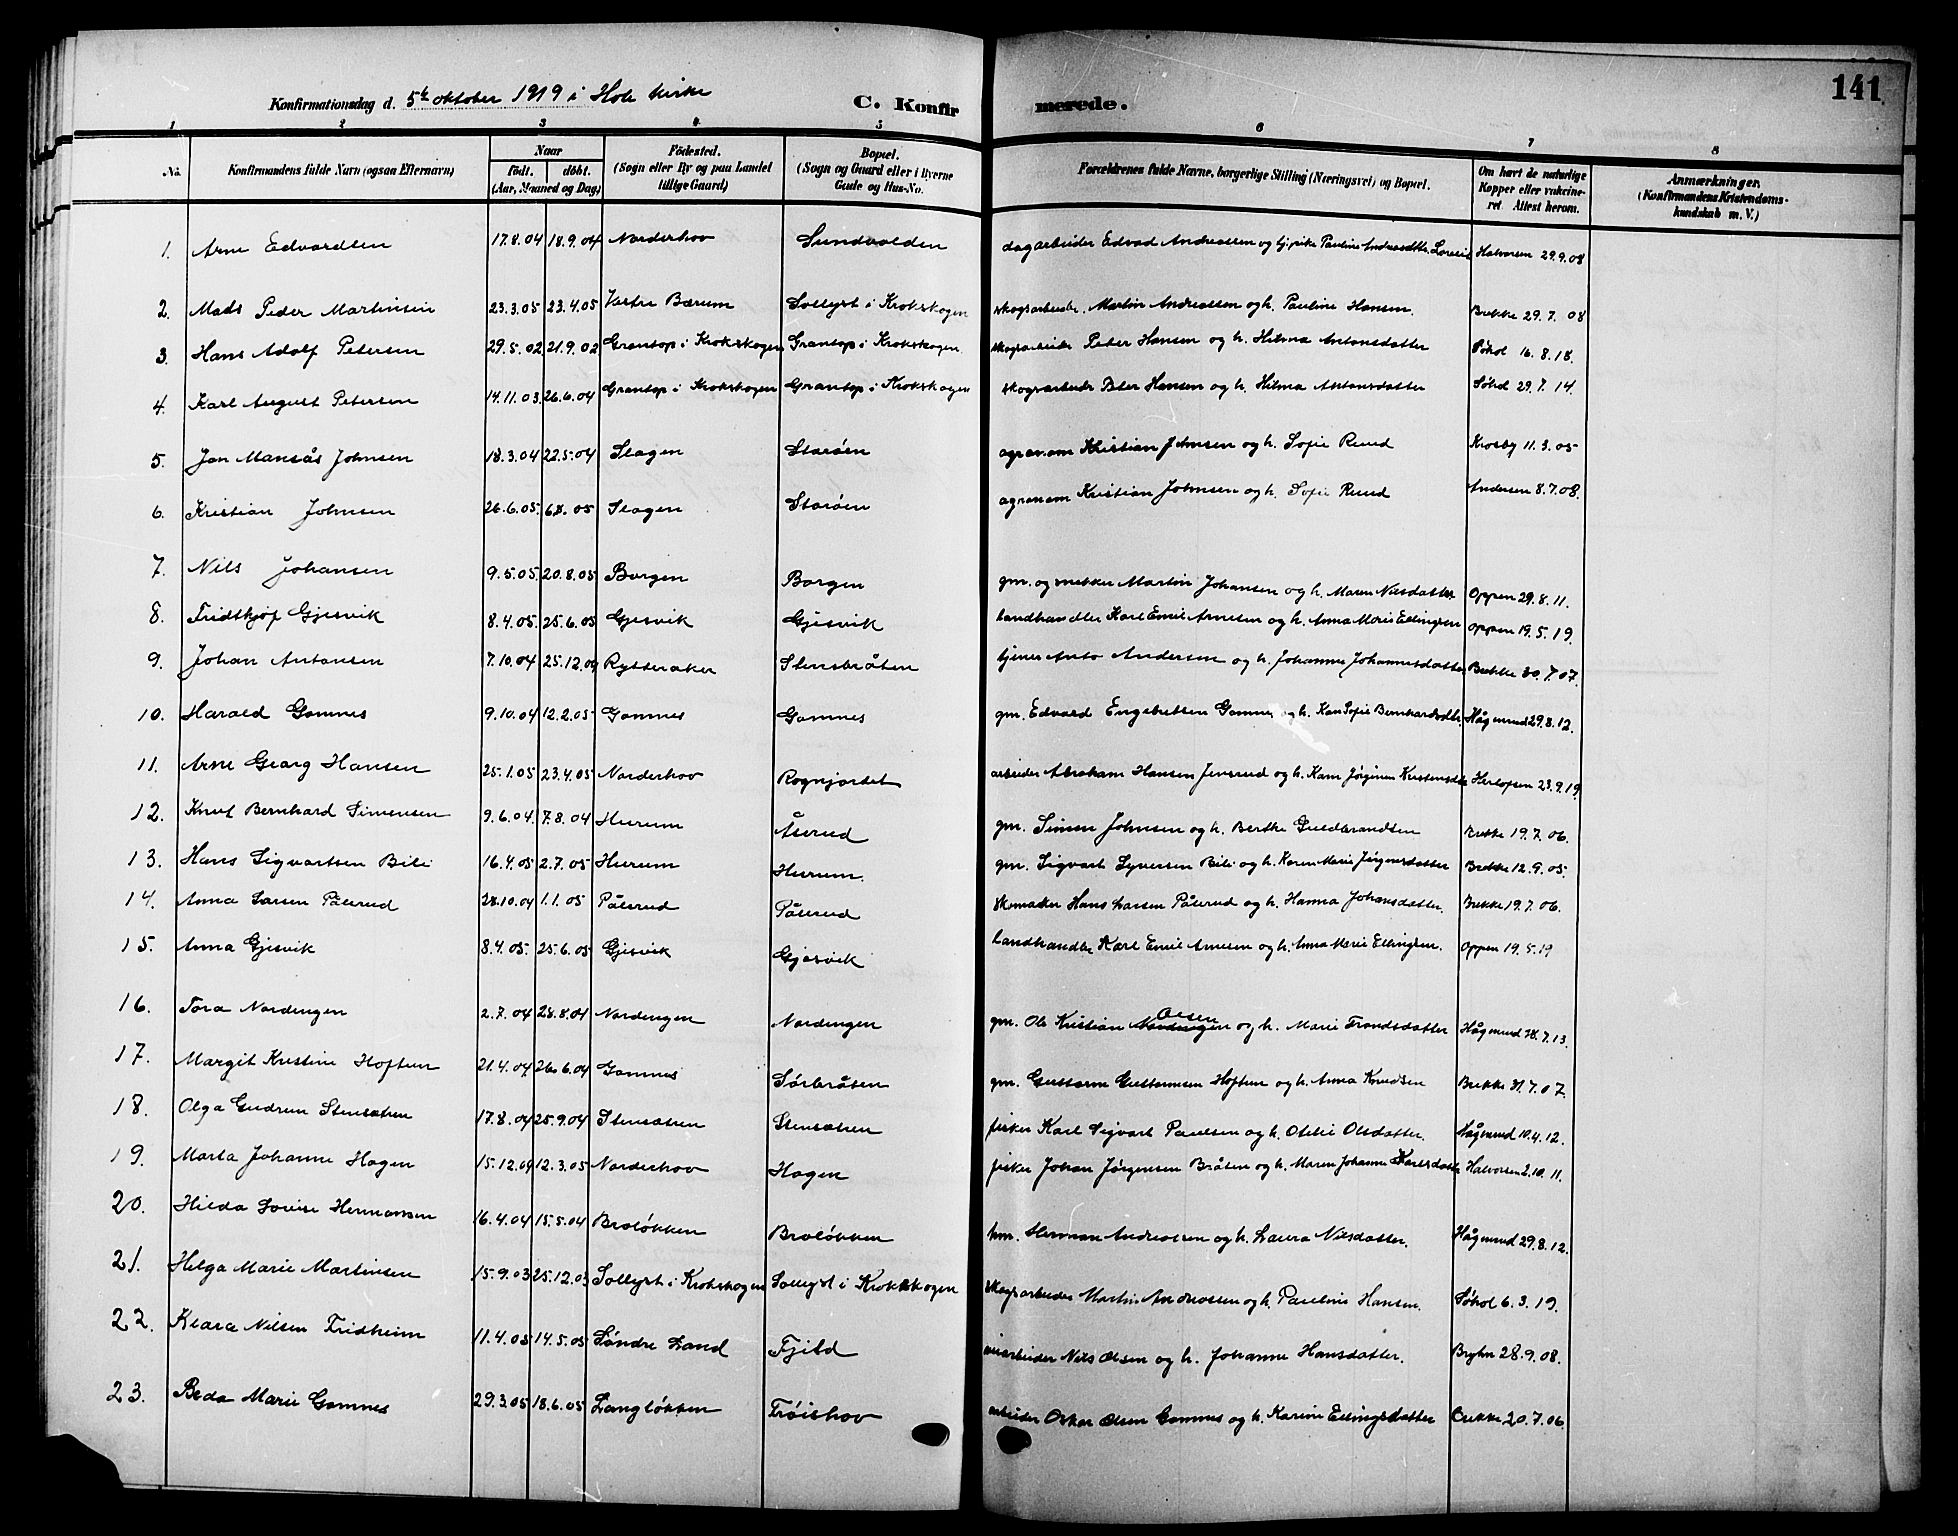 141
Konfirmationsdag d. 5te oktober 1919 i Hole kirke C. Konfirmerede.
1 2 3 4 5 6 7 8
No. Konfirmandens fulde Navn (ogsaa Efternavn) Naar födt. döbt. (Aar, Maaned og Dag) Födested. (Sogn eller By og paa Landet tillige Gaard) Bopæl. (Sogn og Gaard eller i Byerne Gade og Hus-No. Forældrenes fulde Navne, borgerlige Stilling (Næringsvei) og Bopæl. Om havt de naturlige Kopper eller vakcineret. Attest herom. Anmærkninger. (Konfirmandens Kristendomskundskab m. V.)
1. Arne Edvardsen 17.8.04 18.9.04 Norderhov Sundvolden dagarbeider Edvad Andreassen og Pauline Andreasdtr. Halvorsen 29.9.08
2. Mads Peder Martinsen 23.3.05 23.4.05 Vestre Bærum Sollyst i Krokskogen skogsarbeider Martin Andreassen og h. Pauline Hansen. Brekke 29.7.08
3. Hans Adolf Petersen 29.5.02 21.9.02 Grantop i Krokskogen Grantop i Krokskogen skogsarbeider Peter Hansen og h. Hilma Antonsdatter Søhol 16.8.18.
4. Karl August Petersen 14.11.03. 26.6.04 Grantop i Krokskogen Grantop i Krokskogen skogsarbeider Peter Hansen og h. Hilma Antonsdatter Søhol 29.7.14.
5. Jon Mansås Johnsen 18.3.04 22.5.04 Slagen Storöen agronom Kristian Johnsen og h. Sofie Ruud Krosby 11.3.05
6. Kristian Johnsen 26.6.05. 6.8.05 Slagen Storöen agronom Kristian Johnsen og h. Sofie Ruud Andersen 8.7.08.
7. Nils Johansen 9.5.05. 20.8.05 Borgen Borgen gm. og snekker Martin Johansen og h. Maren Nilsdatter Oppen 29.8.11.
8. Fridthjof Gjesvik 8.4.05. 25.6.05 Gjesvik Gjesvik landhandler Karl Emil Arnesen og h. Anna Marie Ellingsen Oppen 19.5.19.
9. Johan Antonsen 7.10.04 25.12.04 Rytteraker Stensbråten tjener Anto Andersen og h. Johanne Johannesdatter Brekke 30.7.07.
10. Harald Gomnes 9.10.04 12.2.05 Gomnes Gomnes gm. Edvard Engebretsen Gomnes og h. Karen Sofie Bernhardsdtr. Hågnrud 29.8.12.
11. Arne Georg Hansen 25.1.05 23.4.05 Norderhov Rognjordet arbeider Abraham Hansen Jensrud og h. Karen Jørginea Kristensdtr Herlofsen 23.9.19
12. Knut Bernhard Simensen 9.6.04 7.8.04 Hurum Åserud gm. Simen Johnsen og h. Berthe Guldbrandsen Brekke 19.7.06.
13. Hans Sigvartsen Bili 16.4.05 2.7.05 Hurum Hurum. gm. Sigvart Syversen Bili og h. Karen Marie Jörgensdatter Brekke 12.9.05.
14. Anna Larsen Pålerud 28.10.04 1.1.05 Pålerud Pålerud Skomaker Hans Larsen Pålerud og h. Hanna Johansdatter. Brekke 19.7.06.
15. Anna Gjesvik 8.4.05. 25.6.05 Gjesvik Gjesvik landhandler Karl Emil Arnesen og h. Anna Marie Ellingsen. Oppen 19.5.19
16. Tora Nordengen 2.7.04 28.8.04 Nordengen Nordengen gm. Ole Kristian Nordengen Olsen og h. Marie Frandsdatter Hågnrud 18.7.13.
17. Margit Kristine Hoftun 21.4.04 26.6.04 Gomnes Sörbråten gm. Guttorm Guttormsen Hoftun og h. Anna Knudsen Brekke 31.7.07.
18. Olga Gudrun Stensætren 17.8.04 25.9.04 Stensætren Stensætren fisker Karl Sigvart Paulsen og h. Otelie Olsdatter. Hågnrud 10.4.12.
19. Marta Johanne Hagen 15.12.04 12.3.05 Norderhov Hagen fisker Johan Jörgensen Bråten og h. Maren Johanne Karlsdatter Halvorsen 2.10.11.
20. Hilda Lovise Hermansen 16.4.04 15.5.04 Broløkken Broløkken hm. Herman Andreassen og h. Laura Nilsdatter. Hågnrud 29.8.12.
21. Helga Marie Martinsen 15.9.03 25.12.03 Sollyst i Krokskogen Sollyst i Krokskogen skogsarbeider Martin Andreassen og h. Pauline Hansen. Søhol 6.3.19.
22. Klara Nilsen Fridheim 11.4.05 14.5.05 Søndre Land Fjeld veiarbeider Nils Olsen og h. Johanne Hansdatter. Bryhn 28.9.08.
23. Beda Marie Gomnes 29.3.05 18.6.05 Langløkken Fröishov arbeider Oskar Olsen Gomnes og h. Karine Ellingsdatter Brekke 20.7.06